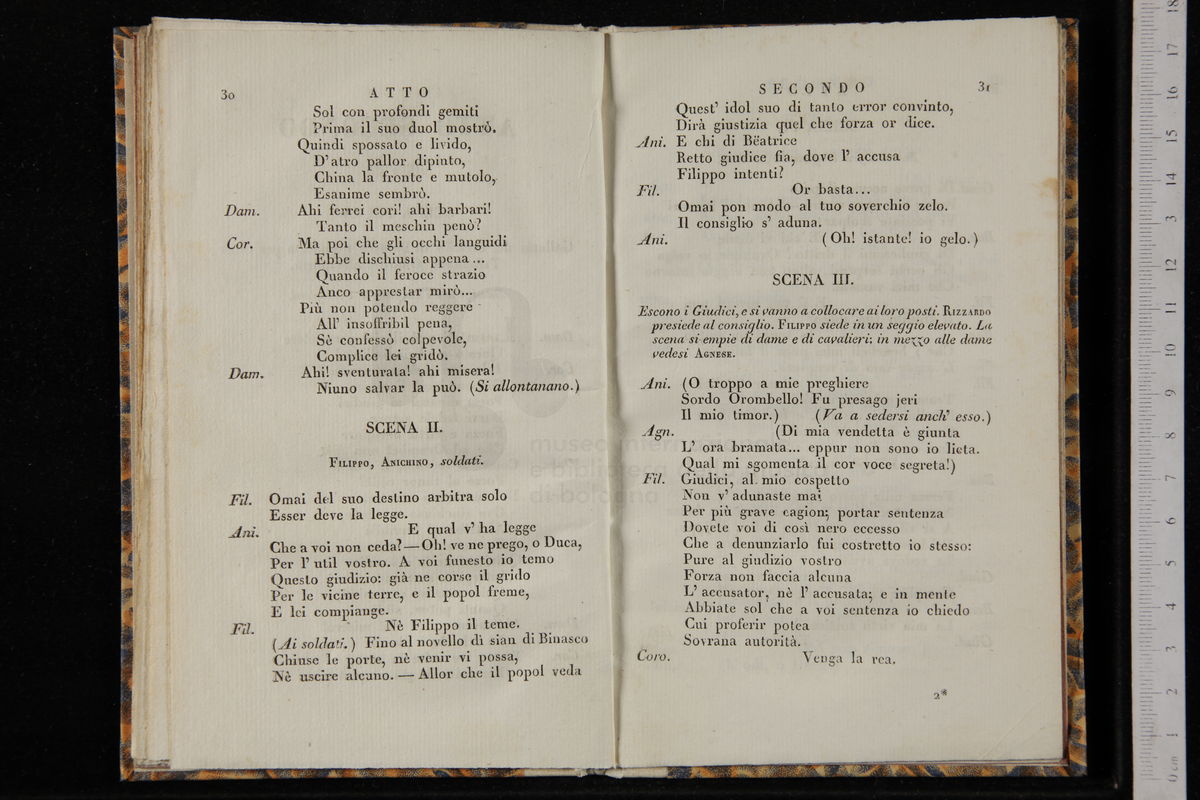 30
ATTO
Sol con profondi gemiti
Prima il suo duol mostrò.
Quindi spossato e livido,
D'atro pallor dipinto,
China la fronte e mutolo,
Esanime sembrò.
Dam. Ahi ferrei cori! ahi barbari!
Tanto il meschin penò?
Cor. Ma poi che gli occhi languidi
Ebbe dischiusi appena...
Quando il feroce strazio
Anco apprestar mirò...
Più non potendo reggere
All' insoffribil pena,
Sè confessò colpevole,
Complice lei gridò.
Dam. Ahi! sventurata! ahi misera!
Niuno salvar la può. (Si allontanano.)
SCENA II.
Filippo, Anichino, soldati.
Fil. Omai del suo destino arbitra solo
Esser deve la legge.
Ani. E qual v' ha legge
Che a voi non ceda? — Oh! ve ne prego, o Duca,
Per l' util vostro. A voi funesto io temo
Questo giudizio: già ne corse il grido
Per le vicine terre, e il popol freme,
E lei compiange.
Fil. Nè Filippo il teme.
(Ai soldati.) Fino al novello dì sian di Binasco
Chiuse le porte, nè venir vi possa,
Nè uscire alcuno. — Allor che il popol veda
SECONDO
31
Quest' idol suo di tanto error convinto,
Dirà giustizia quel che forza or dice.
Ani. E chi di Bëatrice
Retto giudice fia, dove l' accusa
Filippo intenti?
Fil. Or basta...
Omai pon modo al tuo soverchio zelo.
Il consiglio s' aduna.
Ani. (Oh! istante! io gelo.)
SCENA III.
Escono i Giudici, e si vanno a collocare ai loro posti. Rizzardo
presiede al consiglio. Filippo siede in un seggio elevato. La
scena si empie di dame e di cavalieri: in mezzo alle dame
vedesi Agnese.
Ani. (O troppo a mie preghiere
Sordo Orombello! Fu presago jeri
Il mio timor.) (Va a sedersi anch' esso.)
Agn. (Di mia vendetta è giunta
L' ora bramata... eppur non sono io lieta.
Qual mi sgomenta il cor voce segreta!)
Fil. Giudici, al mio cospetto
Non v' adunaste mai
Per più grave cagion; portar sentenza
Dovete voi di così nero eccesso
Che a denunziarlo fui costretto io stesso:
Pure al giudizio vostro
Forza non faccia alcuna
L' accusator, nè l' accusata; e in mente
Abbiate sol che a voi sentenza io chiedo
Cui proferir potea
Sovrana autorità.
Coro. Venga la rea.
2*
museo internazionale
e biblioteca
di bologna
0 cm 1 2 3 4 5 6 7 8 9 10 11 12 13 14 15 16 17 18